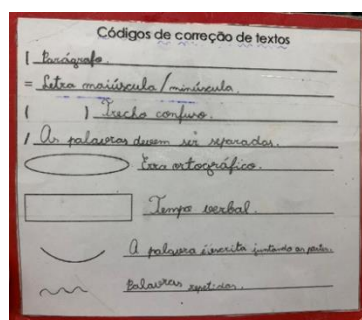 Códigos de correção de textos
[ Parágrafo.
= Letra maiúscula/minúscula.
( ) Trecho confuso.
/ As palavras devem ser separadas.
Erro ortográfico.
Tempo verbal.
A palavra é escrita juntando as partes.
Palavras repetidas.